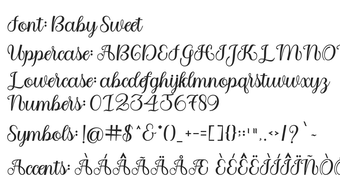 Font: Baby Sweet
Uppercase: ABCDEFGHIJKLMNO
Lowercase: abcdefghijklmnopqrstuvwxyz
Numbers: 0123456789
Symbols: !@#$^&*()_+-=[]{}:;'",.<>/?`~
Accents: ÀÁÂÃÄÅÆ ÈÉÊËÌÍÎÏÑÒÓ